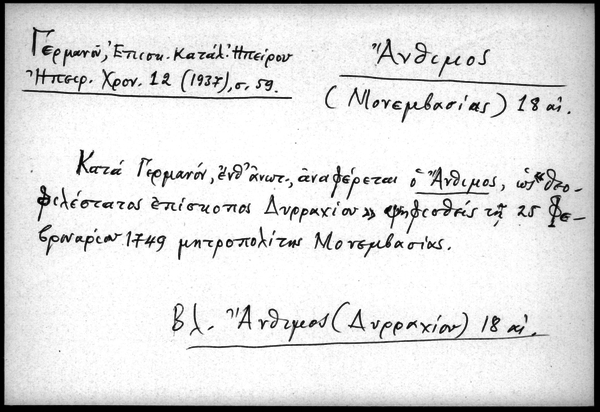 Γερμανοῦ, Ἐπισκ. Κατάλ. Ἠπείρου
Ἠπειρ. Χρον. 12 (1937), σ. 59.
Ἄνθιμος
(Μονεμβασίας) 18 αἰ.
Κατά Γερμανόν, ἐνθ' ἀνωτ., ἀναφέρεται ὁ Ἄνθιμος, ὡς «θεο-
φιλέστατος ἐπίσκοπος Δυρραχίου» ψηφισθείς τῇ 25 Φε-
βρουαρίου 1749 μητροπολίτης Μονεμβασίας.
Βλ. Ἄνθιμος (Δυρραχίου) 18 αἰ.